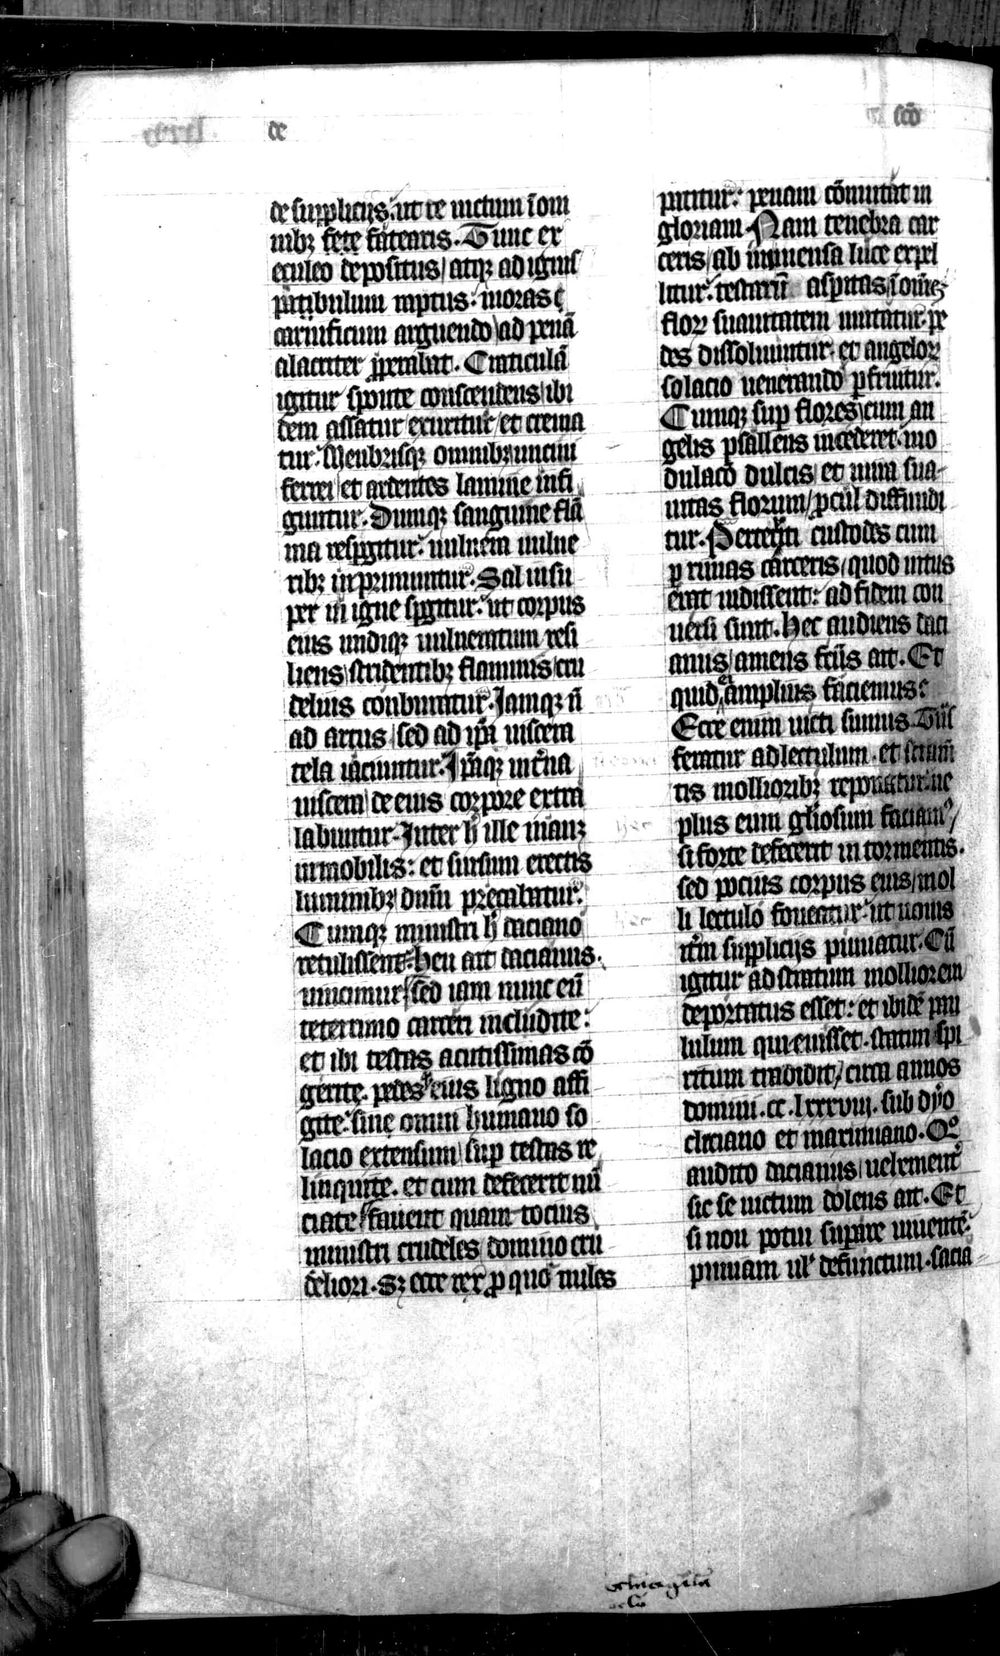 de
scõ
de supplicijs. ut te uictum ĩ om
nibꝫ fete fatearis. Tunc ex
eculeo depositus / atqꝫ ad ignis
patibulum raptus: moras ꝫ
carnificum arguendo / ad penã
alacriter ꝓperabat. Craticulã
igitur sponte conscendens / ibi
dem assatur / exuritur / et crema
tur. Menbrisqꝫ omnibꝫ uncini
ferrei / et ardentes lamine infi
guntur. Dumqꝫ sanguine flã
ma respgitur: uulnera uulne
ribꝫ inprimuntur. Sal insu
per in igne spgitur: ut corpus
eius undiqꝫ uulneratum resi
liens / stridentibꝫ flammis / cru
delius conburatur. Iamqꝫ nõ
ad artus / sed ad ip̃a uiscera
tela iaciuntur. Ip̃aqꝫ int̃na
uiscera / de eius corpore extra
labuntur. Inter h̃ ille manꝫ
inmobilis: et sursum erectis
luminibꝫ / dnm̃ precabatur.
Cumqꝫ ministri h̃ daciano
retulissent: heu ait dacianus.
uincimur / sed iam nunc eũ
teterrimo carceri includite:
et ibi testas acutissimas cõ
gerite. pedesqꝫ eius ligno affi
gite: sine omni humano so
lacio extensum / sup testas re
linquite. et cum defecerit nũ
ciate / fauent quam tocius
ministri crudeles domino cru
deliori. Sꝫ ecce rex ꝓ quo miles
patitur: penam cõmutat in
gloriam. Nam tenebra car
ceris / ab inmensa luce expel
litur. testarũ aspitas ĩ om̃eꝫ
florꝝ suauitatem mutatur. pe
des dissoluuntur. et angelorꝝ
solacio uenerando ꝑfruitur.
Cumqꝫ sup flores / cum an
gelis psallens incederet. mo
dulacõ dulcis / et mira sua
uitas florum / ꝓcul diffundi
tur. Perterriti custodes cum
ꝑ rimas carceris / quod intus
erat uidissent: ad fidem con
uersi sunt. Hec audiens daci
anus / amens fc̃us ait. Et
quid ei amplius faciemus:
Ecce enim uicti sumus. Tñs
feratur ad lectulum. et stram̃
tis mollioribꝫ reponatur. ne
plus eum gl̃iosum faciam9 /
si forte defecerit in tormentis.
sed pocius corpus eius / mol
li lectulo foueatur. ut nouis
it̃m supplicijs puniatur. Cũ
igitur ad stratum molliorem
deportatus esset: et ibidẽ pau
lulum quieuisset. statim spi
ritum tradidit / circa annos
domini .cc.lxxxviij. sub dyo
cleciano et maximiano. Qº
audito dacianus / uehement̃
sic se uictum dolens ait. Et
si non potui suꝑare uiuentẽ:
puniam ul' defunctum. sacia